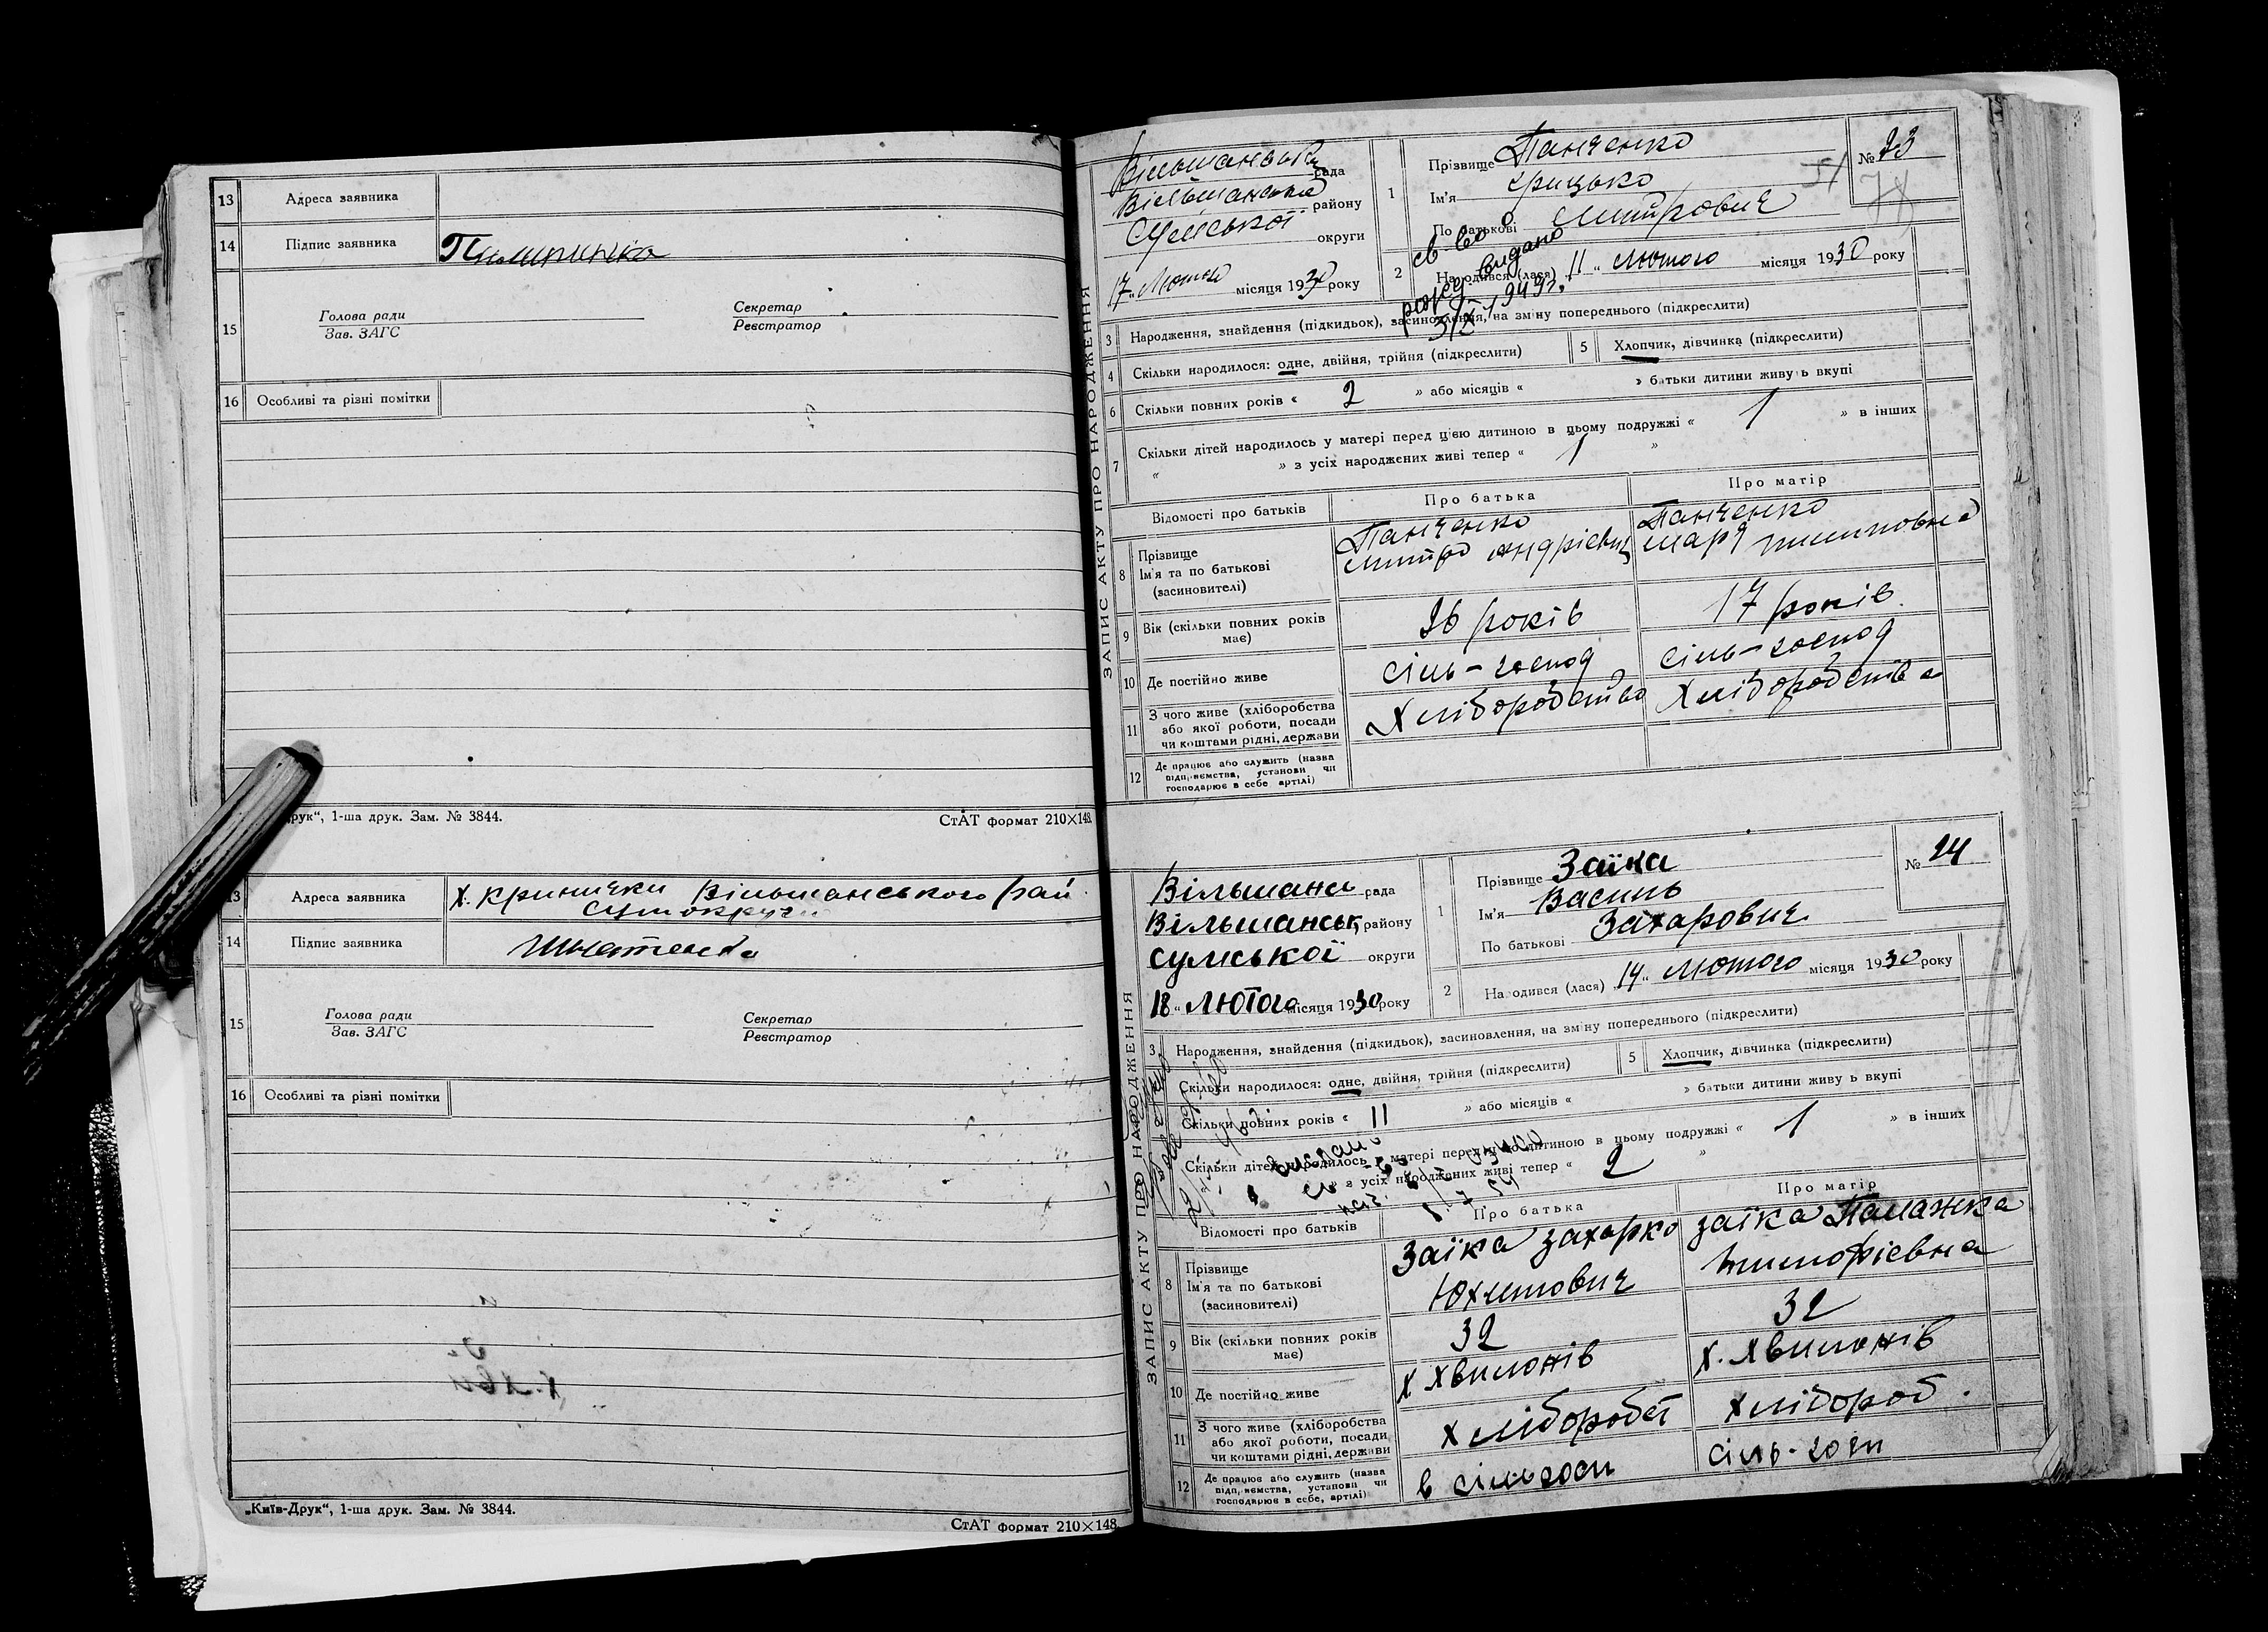 13 Адреса заявника
14 Підпис заявника
15 Голова ради
Зав. ЗАГС
Секретар
Реєстратор
16 Особливі та різні помітки
друк“, 1-ша друк. Зам. № 3844.
СтАТ формат 210×148.
13 Адреса заявника х. Кринички Вільшанського рай
Сум округи
14 Підпис заявника
15 Голова ради
Зав. ЗАГС
Секретар
Реєстратор
16 Особливі та різні помітки
„Київ-Друк“, 1-ша друк. Зам. № 3844.
СтАТ формат 210×148.
ЗАПИС АКТУ ПРО НАРОДЖЕННЯ
Вільшанська рада
Вільшанська району
Сумської округи
17 „ Лютого місяця 1930 року
1 Прізвище Панченко
Ім'я Грицько
По батькові Митрович
№ 23
51
78
2 Народився (лася) „ 11 “ Лютого місяця 1930 року
св-во о
рожд видано
3/X 1949г.
3 Народження, знайдення (підкидьок), засиновлення, на зміну попереднього (підкреслити)
4 Скільки народилося: одне, двійня, трійня (підкреслити)
5 Хлопчик, дівчинка (підкреслити)
6 Скільки повних років « 2 » або місяців « » батьки дитини живуть вкупі
7 Скільки дітей народилось у матері перед цією дитиною в цьому подружжі « 1 » в інших
« » з усіх народжених живі тепер « 1 »
Відомості про батьків
Про батька
Про матір
8 Прізвище
Ім'я та по батькові
(засиновителі)
Панченко
Митро Андрієвич
Панченко
Маря Пилиповна
9 Вік (скільки повних років має)
26 років
17 років
10 Де постійно живе
сіль-господ
сіль-господ
11 З чого живе (хліборобства
або якої роботи, посади
чи коштами рідні, держави
Хлібороботво
Хлібороботва
12 Де працює або служить (назва
підприємства, установи чи
господарює в себе, артілі)
ЗАПИС АКТУ ПРО НАРОДЖЕННЯ
Вільшана рада
Вільшанськ району
Сумської округи
18 „ Лютого місяця 1930 року
1 Прізвище Заїка
Ім'я Василь
По батькові Захарович
№ 24
2 Народився (лася) „ 14 “ Лютого місяця 1930 року
3 Народження, знайдення (підкидьок), засиновлення, на зміну попереднього (підкреслити)
Скільки народилося: одне, двійня, трійня (підкреслити)
5 Хлопчик, дівчинка (підкреслити)
Скільки повних років « 11 » або місяців « » батьки дитини живуть вкупі
Скільки дітей народилось у матері перед цією дитиною в цьому подружжі « 1 » в інших
» з усіх народжених живі тепер « 2 »
Відомості про батьків
Про батька
Про матір
8 Прізвище
Ім'я та по батькові
(засиновителі)
Заїка Захарко
Юхимович
Заїка Палажка
Тимофієвна
9 Вік (скільки повних років має)
32
32
10 Де постійно живе
х Хвилонів
х. Хвилонів
11 З чого живе (хліборобства
або якої роботи, посади
чи коштами рідні, держави
Хліборобст
Хлібороб.
12 Де працює або служить (назва
підприємства, установи чи
господарює в себе, артілі)
в сільгосп
сіль-госп